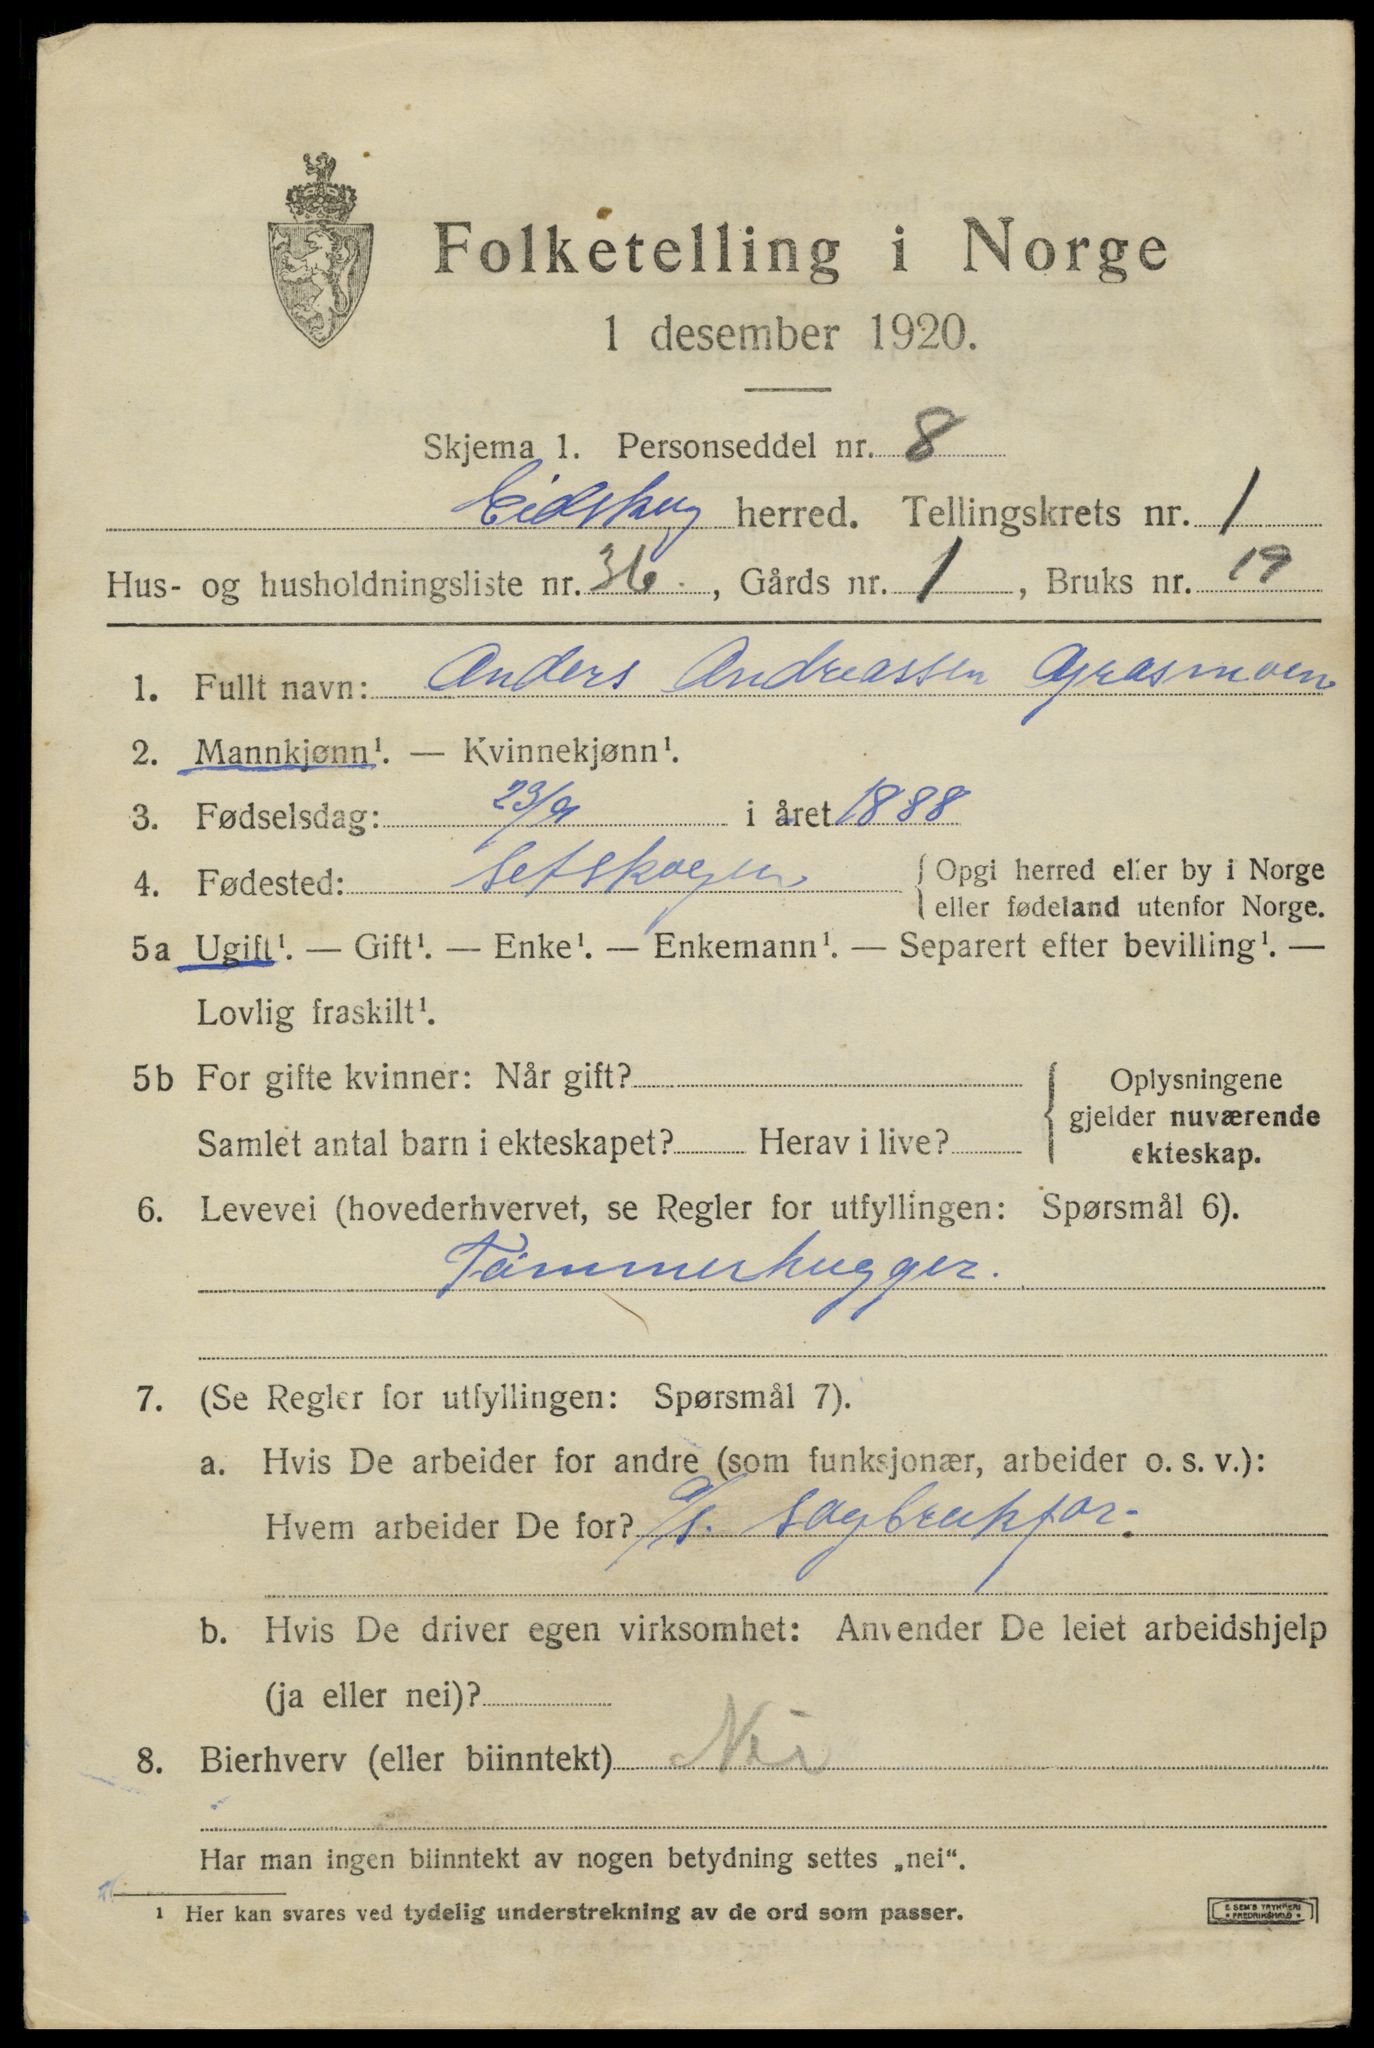 Folketelling i Norge
1 desember 1920.
Skjema 1. Personseddel nr. 8
Eidskog herred. Tellingskrets nr. 1
Hus- og husholdningsliste nr. 36., Gårds nr. 1, Bruks nr. 19
1. Fullt navn: Anders Andreassen Grasmoen
2. Mannkjønn¹. — Kvinnekjønn¹.
3. Fødselsdag: 23/9 i året 1888
4. Fødested: Setskogen { Opgi herred eller by i Norge
eller fødeland utenfor Norge.
5a Ugift¹. — Gift¹. — Enke¹. — Enkemann¹. — Separert efter bevilling¹. —
Lovlig fraskilt¹.
5b For gifte kvinner: Når gift? { Oplysningene
gjelder nuværende
Samlet antal barn i ekteskapet? Herav i live? ekteskap.
6. Levevei (hovederhvervet, se Regler for utfyllingen: Spørsmål 6).
Tømmerhugger.
7. (Se Regler for utfyllingen: Spørsmål 7).
a. Hvis De arbeider for andre (som funksjonær, arbeider o. s. v.):
Hvem arbeider De for? A/S. Sagbrukfor-
b. Hvis De driver egen virksomhet: Anvender De leiet arbeidshjelp
(ja eller nei)?
8. Bierhverv (eller biinntekt) Nei
Har man ingen biinntekt av nogen betydning settes „nei“.
¹ Her kan svares ved tydelig understrekning av de ord som passer.
E SEM'S TRYKKERI
* FREDRIKSHALD *